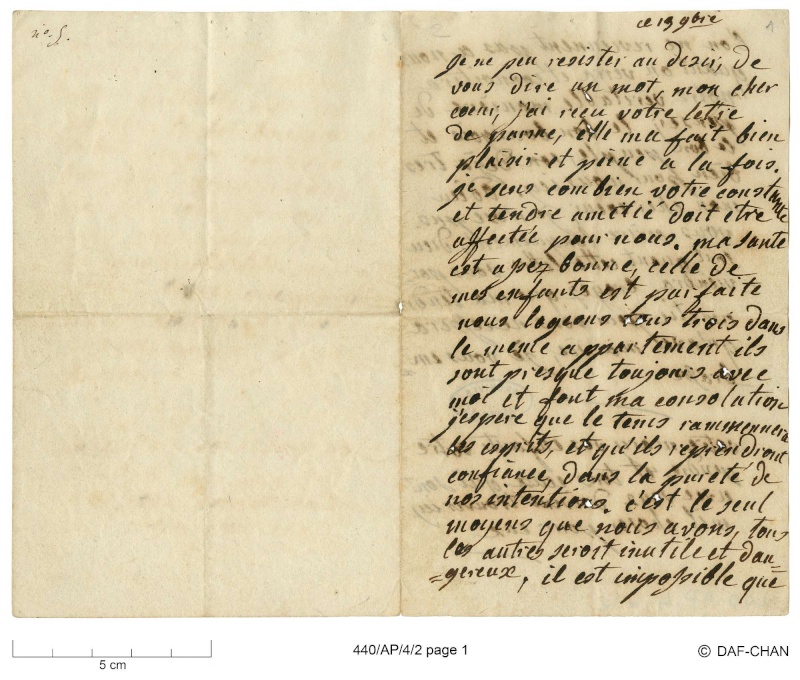 nº 5.
ce 19 9bre
1
je ne peu resister au desir, de
vous dire un mot, mon cher
coeur, j'ai recu votre lettre
de parme, elle ma fait bien
plaisir et peine a la fois.
je sens combien votre constante
et tendre amitié doit etre
affectée pour nous. ma santé
est assez bonne, celle de
mes enfants est parfaite
nous logeons tous trois dans
le meme appartement ils
sont presque toujours avec
moi et font ma consolation
j'espere que le tems rammennera
les esprits, et qu'ils reprendront
confiance, dans la pureté de
nos intentions. c'est le seul
moyens que nous avons, tous
les autres seroit inutile et dan=
=gereux, il est impossible que
5 cm
440/AP/4/2 page 1
© DAF-CHAN